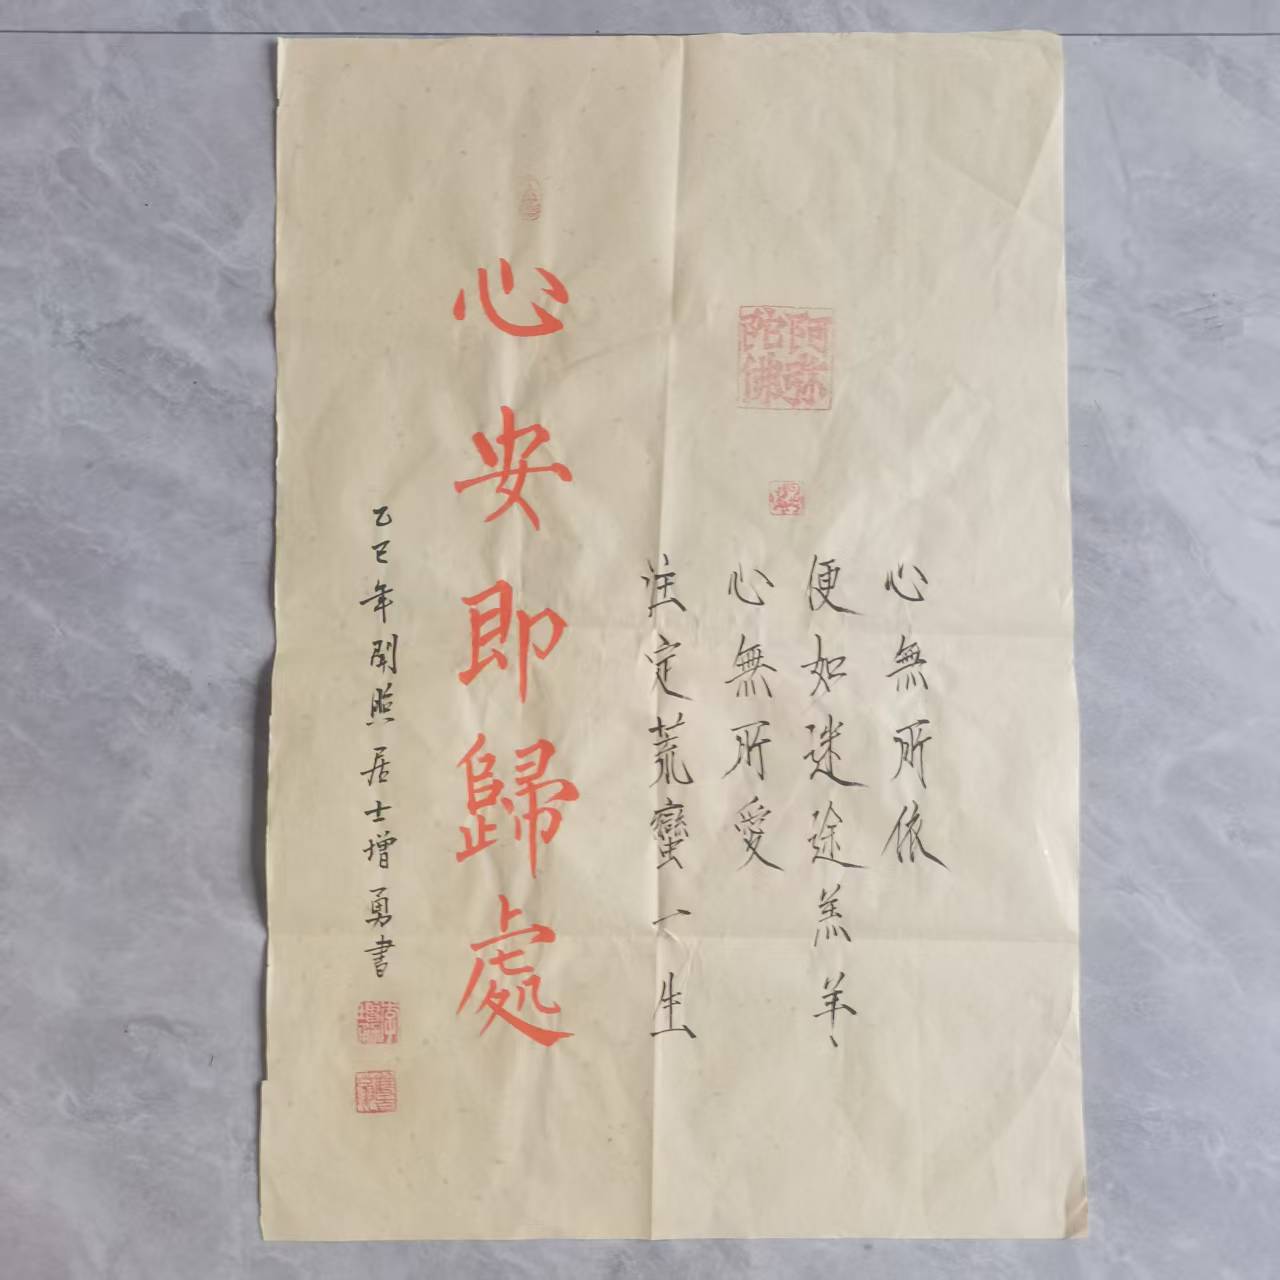 阿彌陀佛
心無所依
便如迷途羔羊、
心無所愛
注定荒蠻一生
心安即歸處
乙巳年開照居士增勇書